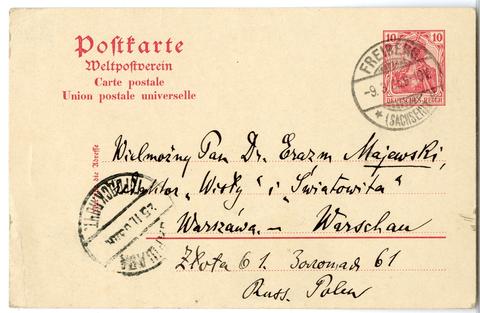 Postkarte
Weltpostverein
Carte postale
Union postale universelle
10 10
DEUTSCHES REICH
FREIBERG
(SACHSEN)
die Adresse
Wielmożny Pan Dr. Erazm Majewski,
"Wisły" i "Światowita"
Warszawa. — Warschau
Złota 61. 61
Russ. Polen